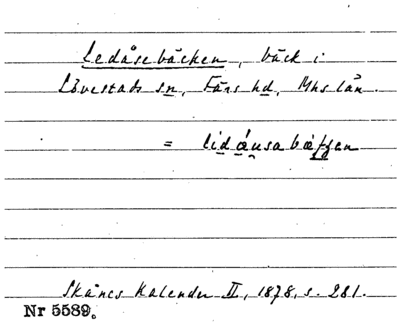 Ledåsebäcken, bäck i
Lövestads sn, Färs hd, Mhs län.
= lidáusa bæ
Skånes Kalender II, 1878, s. 281.
Nr 5589.